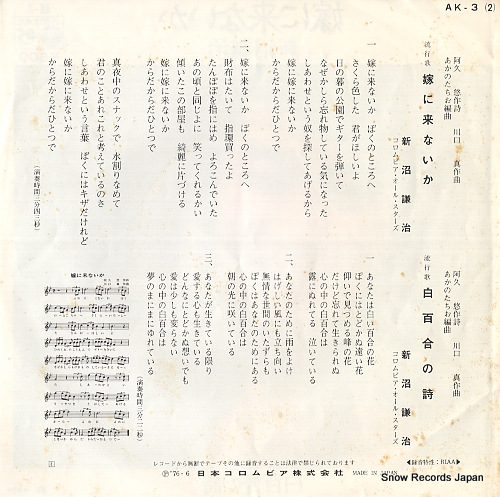 AK-3 (2)
阿久 悠作詩 川口 真作曲
あかのたちお編曲
流行歌 嫁に来ないか
新沼謙治
コロムビア・オール・スターズ
一、嫁に来ないか ぼくのところへ
さくら色した 君がほしいよ
日の暮の公園でギターを弾いて
なぜかしら忘れ物している気になった
しあわせという奴を探してあげるから
嫁に嫁に来ないか
からだからだひとつで
二、嫁に来ないか ぼくのところへ
財布はたいて 指環買ったよ
たんぽぽを指にはめ よろこんでいた
あの頃と同じよに 笑ってくれるかい
傾いたこの部屋も 綺麗に片づける
嫁に嫁に来ないか
からだからだひとつで
真夜中のスナックで 水割りなめて
君のことあれこれと考えているのさ
しあわせという言葉 ぼくにはキザだけれど
嫁に嫁に来ないか
からだからだひとつで
(演奏時間三分四三秒)
阿久 悠作詩 川口 真作曲
あかのたちお編曲
流行歌 白百合の詩
新沼謙治
コロムビア・オール・スターズ
一、あなたは白い百合の花
ぼくにはとどかぬ遠い花
仰いで見つめる峰の花
だけど忘れて生きられぬ
心の中の白百合は
露にぬれてる 泣いている
二、あなたのために雨をよけ
はげしい風にも立ち向い
無情な世間のいたずらも
ぼくはあなたのためにある
心の中の白百合は
朝の光に咲いている
三、あなたが生きている限り
愛する心も生きている
どんなにとどかぬ想いでも
愛は少しも変らない
心の中の白百合は
夢のまにまにゆれている
嫁に来ないか
レコードから無断でテープその他に録音することは法律で禁じられています
℗'76・6 日本コロムビア株式会社 MADE IN JAPAN
◀録音特性:RIAA▶
Snow Records Japan